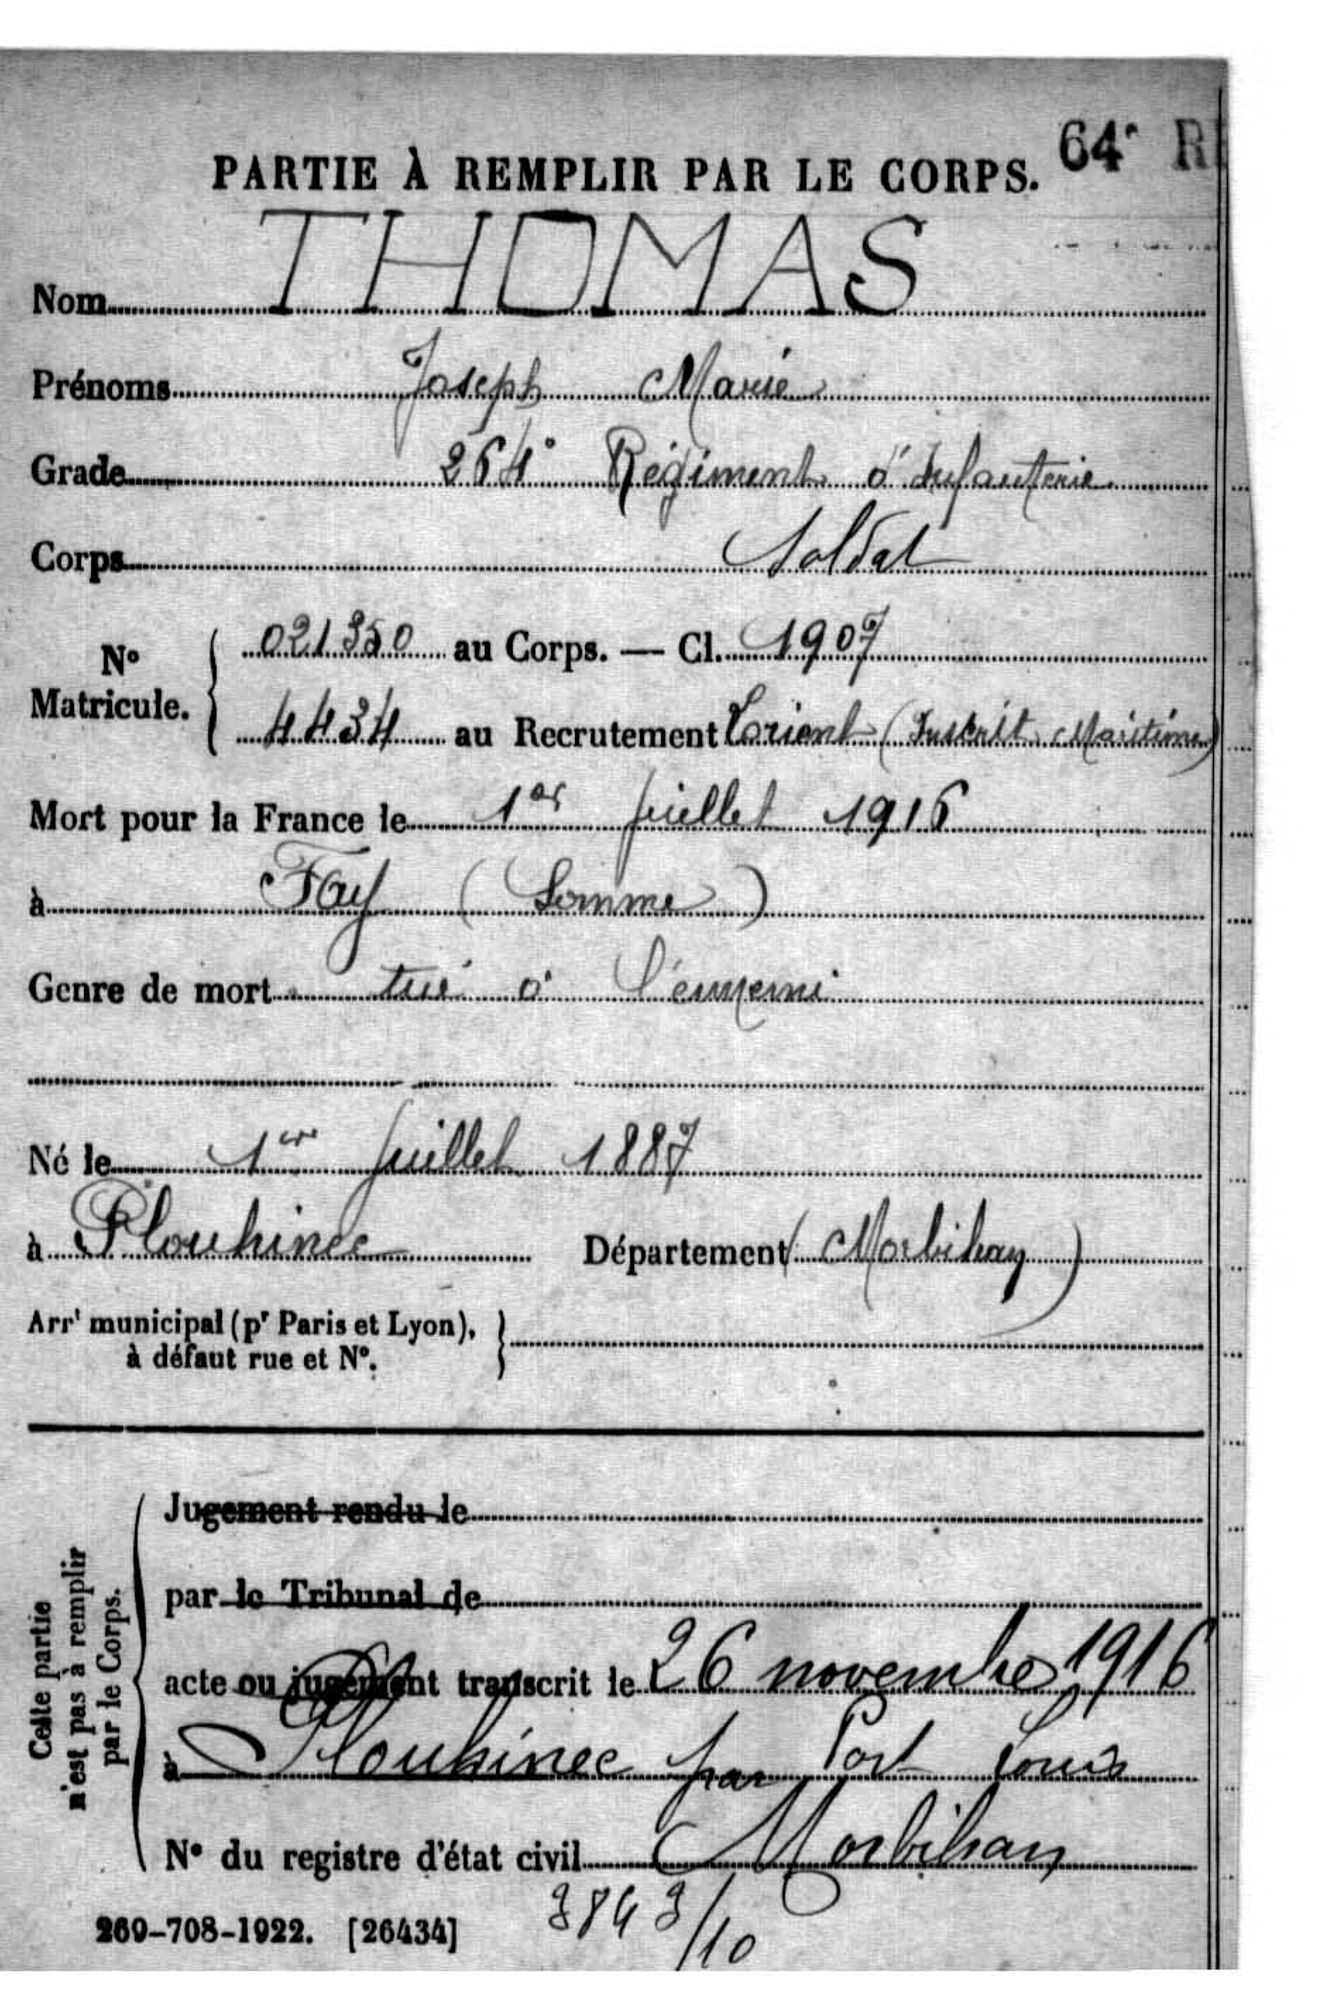 64e R
PARTIE À REMPLIR PAR LE CORPS.
Nom THOMAS
Prénoms Joseph Marie
Grade 264e Régiment d'Infanterie
Corps Soldat
No Matricule. { 021350 au Corps. — Cl. 1907
4434 au Recrutement Lorient (Inscrit Maritime)
Mort pour la France le 1er juillet 1916
à Fay (Somme)
Genre de mort tué à l'ennemi
Né le 1er juillet 1887
à Plouhinec Département (Morbihan)
Arrt municipal (pr Paris et Lyon),
à défaut rue et No.
Cette partie
n'est pas à remplir
par le Corps.
Jugement rendu le
par le Tribunal de
acte ou jugement transcrit le 26 novembre 1916
à Plouhinec par Port Louis
No du registre d'état civil Morbihan
269-708-1922. [26434] 3843/10